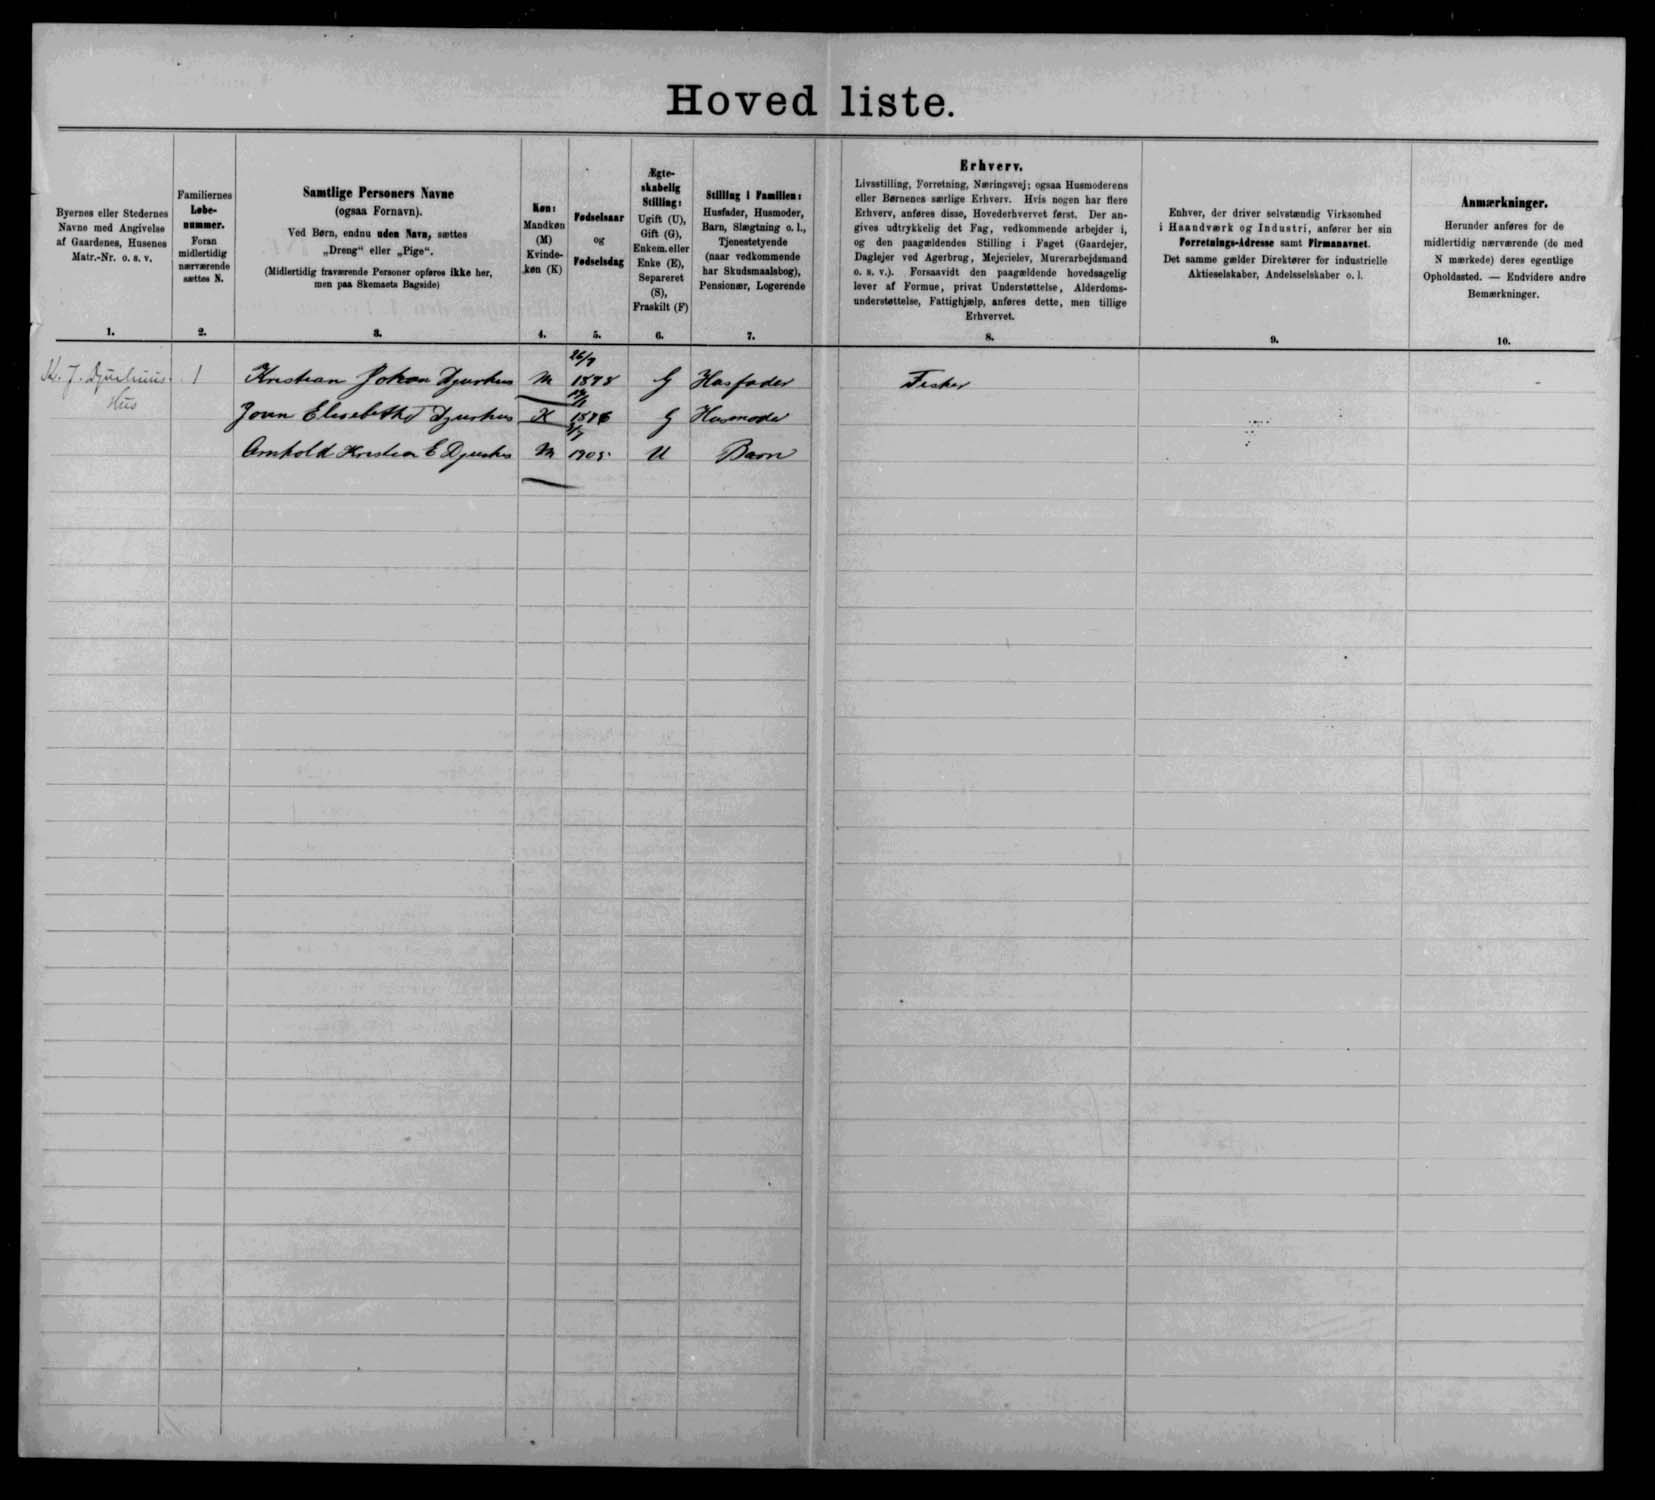 Hoved liste.
Byernes eller Stedernes
Navne med Angivelse
af Gaardenes, Husenes
Matr.-Nr. o. s. v.
1.
Familiernes
Løbe-
nummer.
Foran
midlertidig
nærværende
sættes N.
2.
Samtlige Personers Navne
(ogsaa Fornavn).
Ved Børn, endnu uden Navn, sættes
„Dreng“ eller „Pige“.
(Midlertidig fraværende Personer opføres ikke her,
men paa Skemaets Bagside)
3.
Køn:
Mandkøn
(M)
Kvinde-
køn (K)
4.
Fødselsaar
og
Fødselsdag
5.
Ægte-
skabelig
Stilling:
Ugift (U),
Gift (G),
Enkem. eller
Enke (E),
Separeret
(S),
Fraskilt (F)
6.
Stilling i Familien:
Husfader, Husmoder,
Barn, Slægtning o. l.,
Tjenestetyende
(naar vedkommende
har Skudsmaalsbog),
Pensionær, Logerende
7.
Erhverv.
Livsstilling, Forretning, Næringsvej; ogsaa Husmoderens
eller Børnenes særlige Erhverv. Hvis nogen har flere
Erhverv, anføres disse, Hovederhvervet først. Der an-
gives udtrykkelig det Fag, vedkommende arbejder i,
og den paagældendes Stilling i Faget (Gaardejer,
Daglejer ved Agerbrug, Mejerielev, Murerarbejdsmand
o. s. v.). Forsaavidt den paagældende hovedsagelig
lever af Formue, privat Understøttelse, Alderdoms-
understøttelse, Fattighjælp, anføres dette, men tillige
Erhvervet.
8.
Enhver, der driver selvstændig Virksomhed
i Haandværk og Industri, anfører her sin
Forretnings-Adresse samt Firmanavnet.
Det samme gælder Direktører for industrielle
Aktieselskaber, Andelsselskaber o. l.
9.
Anmærkninger.
Herunder anføres for de
midlertidig nærværende (de med
N mærkede) deres egentlige
Opholdssted. — Endvidere andre
Bemærkninger.
10.
K. J. Djurhuus. 1 Kristian Johan Djurhus M 1878 G Husfader Fisker
Hus
Elisebeth Djurhus K G Husmoder
Kristian E Djurhus M 1905 U Barn